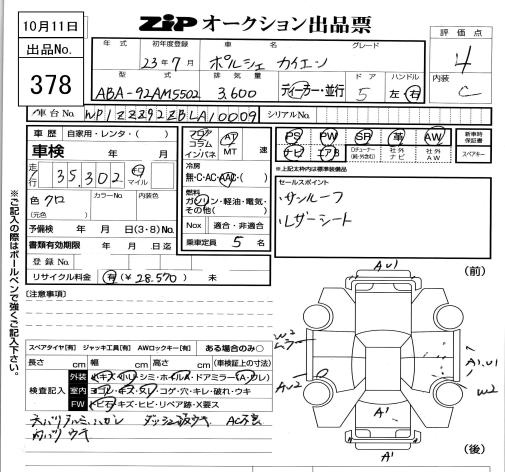 10月11日
ZiP オークション出品票
出品No.
378
年式 初年度登録 車名 グレード
23年7月 ポルシェ カイエン
型式 排気量 ドア ハンドル
ABA-92AM5502 3,600 ディーラー・並行 5 左・右
評価点
4
内装
C
車台No. WP1ZZZ92ZBLA10009 シリアルNo.
車歴 自家用・レンタ・( )
車検
走行 35,302 km マイル
色 クロ カラーNo. 内装色
(元色 )
予備検 年 月 日(3・8)No.
書類有効期限 年 月 日迄
登録No.
リサイクル料金 有(¥ 28,570 )未
フロア
コラム
インパネ
AT
MT 速
冷房
無・C・AC・AAC・( )
燃料
ガソリン・軽油・電気・
その他( )
Nox 適合・非適合
乗車定員 5 名
PS PW SR 革 AW
ナビ エアB 社外ナビ 社外AW
新車時保証書
スペアキー
※上記太枠内は標準装備品
セールスポイント
サンルーフ
レザーシート
※ご記入の際はボールペンで強くご記入下さい。
【注意事項】
スペアタイヤ[有] ジャッキ工具[有] AWロックキー[有] ある場合のみ○
長さ cm 幅 cm 高さ cm (車検証上の寸法)
検査記入
外装
室内 コゲ・穴・キレ・破れ・ウキ
FW トビ石・キズ・ヒビ・リペア跡・X要ス
(前)
(後)
AU1
AU2
W2
A1
A1